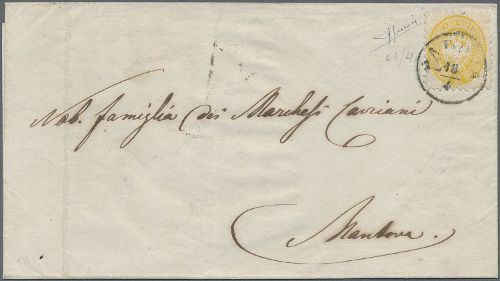 18
4
Nob. famiglia dei Marchesi Cavriani
Mantova.